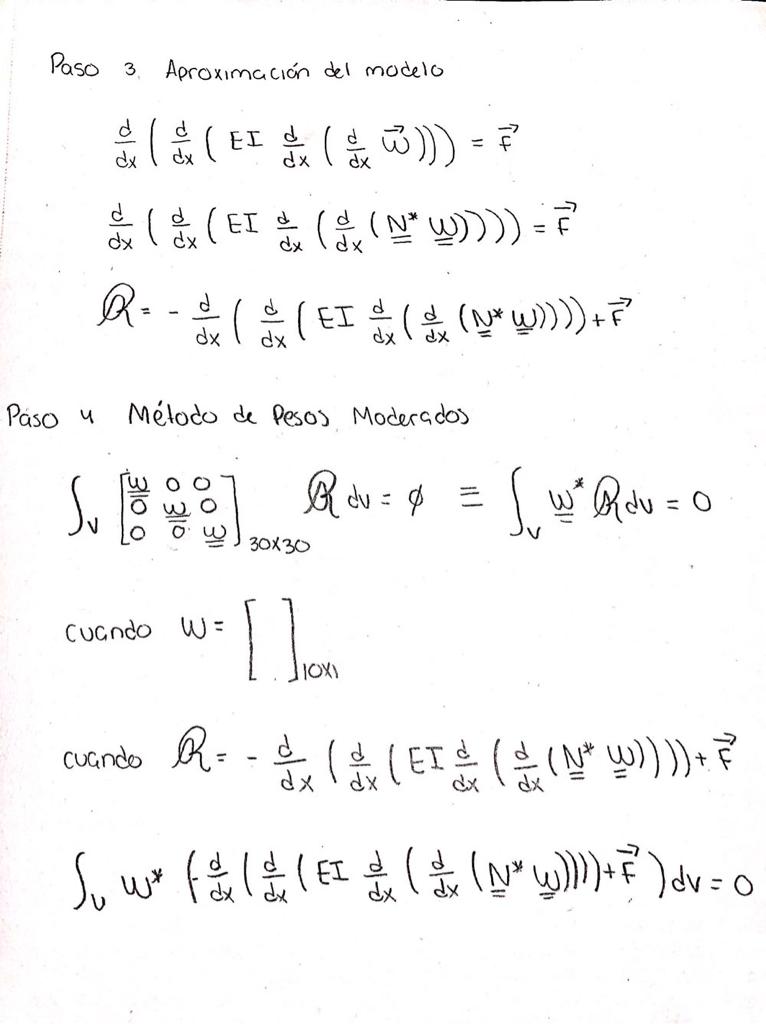 Paso 3. Aproximación del modelo
d/dx ( d/dx ( EI d/dx ( d/dx W⃗ ))) = F⃗
d/dx ( d/dx ( EI d/dx ( d/dx ( N̳* W̳ )))) = F⃗
R = - d/dx ( d/dx ( EI d/dx ( d/dx ( N̳* W̳ )))) + F⃗
Paso 4 Método de Pesos Moderados
∫v [ W̳ 0 0 ; 0 W̳ 0 ; 0 0 W̳ ] 30x30 R dv = ∅ ≡ ∫v W̳* R dv = 0
cuando W = [ ] 10x1
cuando R = - d/dx ( d/dx ( EI d/dx ( d/dx ( N̳* W̳ )))) + F⃗
∫v W* (- d/dx ( d/dx ( EI d/dx ( d/dx ( N̳* W̳ )))) + F⃗ ) dv = 0